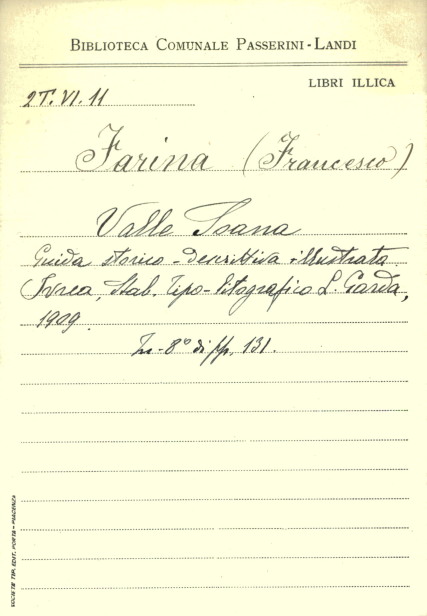 BIBLIOTECA COMUNALE PASSERINI-LANDI
LIBRI ILLICA
2T.VI.11
Farina (Francesco)
Valle Soana
Guida storico-descrittiva illustrata
Ivrea, Stab. Tipo-litografico L. Garda,
1909.
In-8° di pp. 131.
SOCIETÀ TIP. EDIT. PORTA - PIACENZA